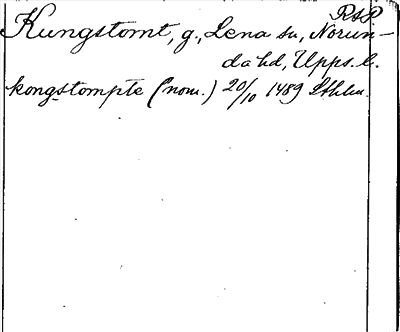 RAP
Kungstomt, g., Lena sn, Norun-
da hd, Upps. l.
kongstompte (nom.) 20/10 1489 Sthlm.